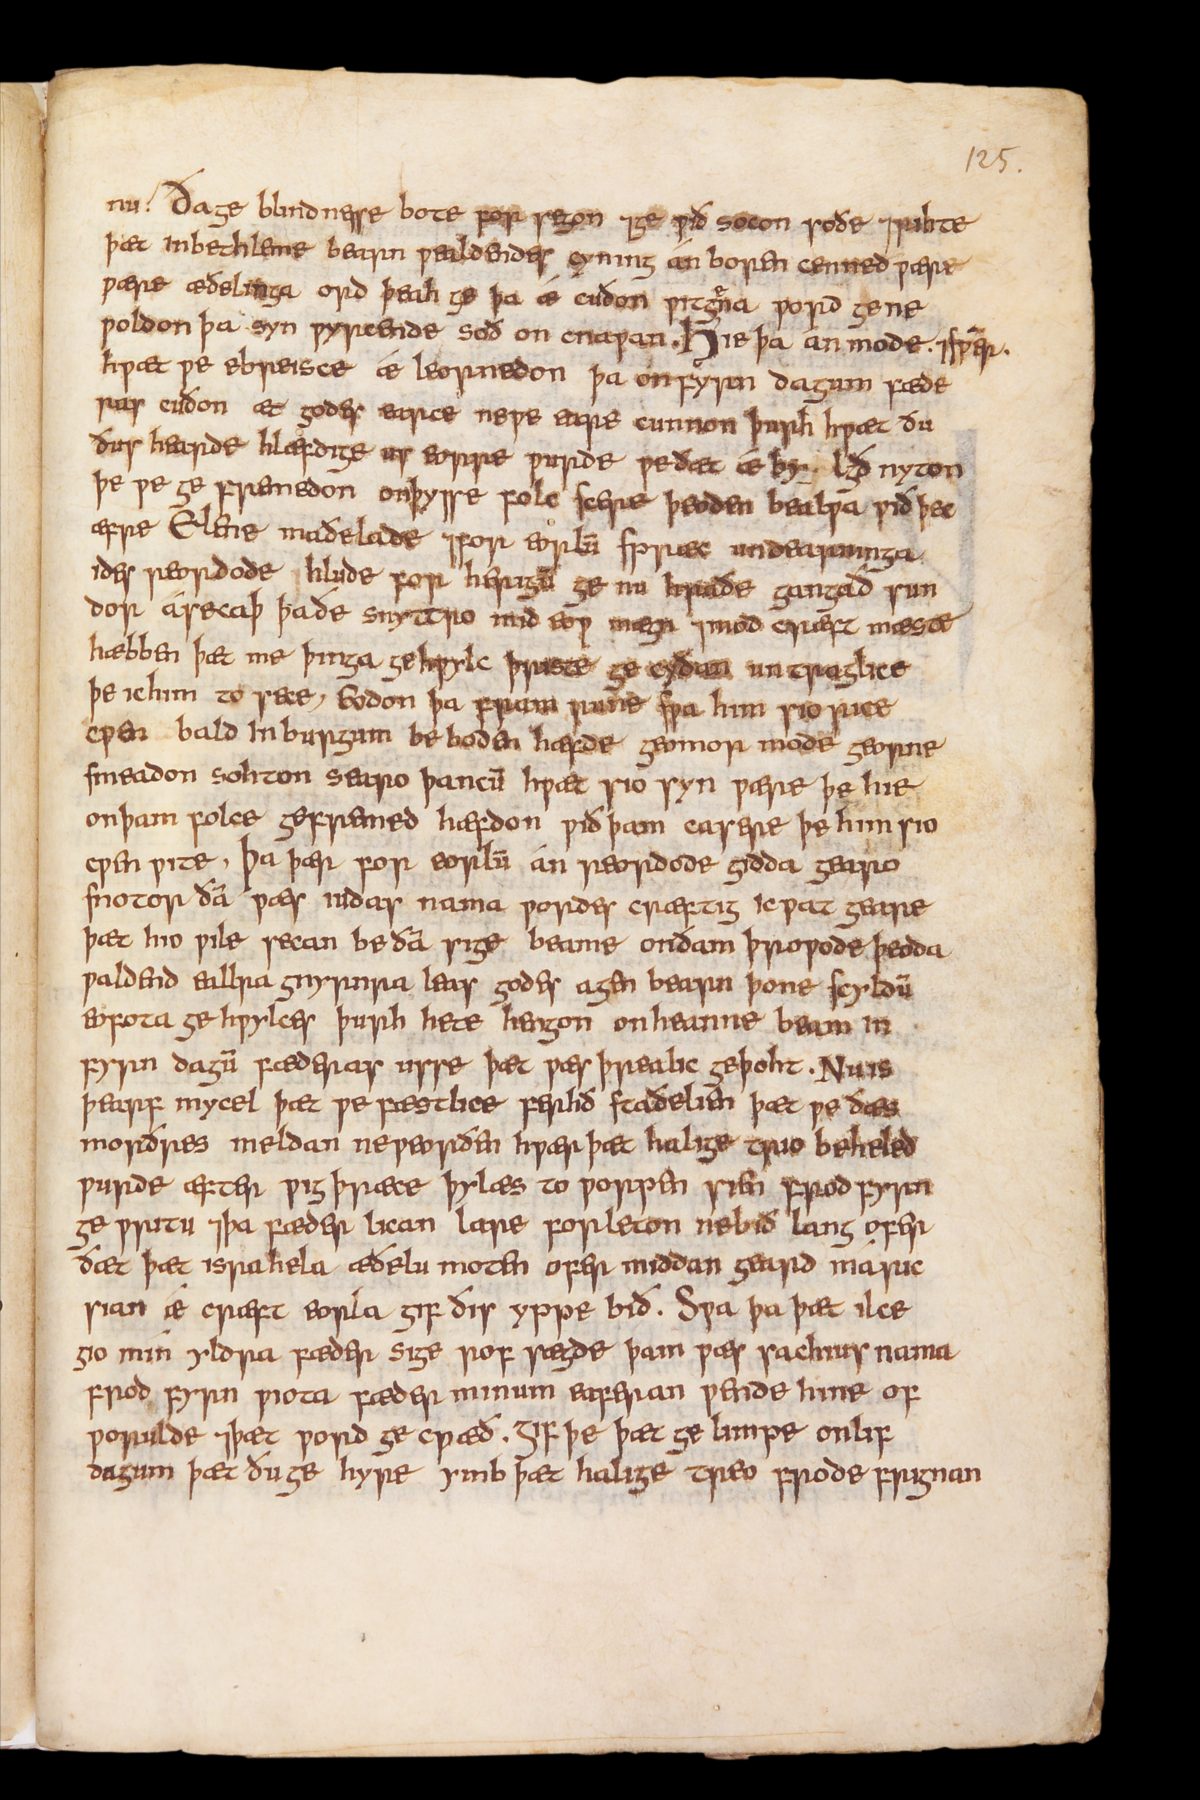 125.
nu. Ða ge blindnesse bote forsegon ⁊ge ƿið socon soðe ⁊rihte
þæt inbethleme bearn ƿealdendes cyning án boren cenned ƿære
ƿære æðelinga ord þeah ge þa ǽ cuðon ƿitgena ƿord gene
ƿoldon þa syn ƿyrcende soð on cnaƿan. Hie þa anmode. ⁊sƿer.
hƿæt ƿe ebreisce ǽ leornedon þa onfyrn dagum fæde
ras cuðon æt godes earce neƿe eare cunnon þurh hƿæt ðu
ðus hearde hlæfdige us eorre ƿurde ƿe ðæt æ by lgð nyton
þe ƿe ge fremedon onþysse folc scere þeoden bealƿa ƿið þec
æfre Elene maðelade ⁊for eorlū spræc undearninga
ides reordode hlude for herigū ge nu hraðe gangað sun
dor ásecaþ þaðe snyttro mid eoƿ mægn ⁊mod cræft mæste
hæbben þæt me þinga gehƿylc þriste ge cyðan untraglice
þe ic him to sece, Eodon þa fram rune sƿa him sio rice
cƿen bald In burgum beboden hæfde geomor mode georne
smeadon sohton searo þancū hƿæt sio syn ƿære þe hie
onþam folce gefremed hæfdon ƿið þam casere þe him sio
cƿen ƿite, Þa þær for eorlū án reordode gidda gearo
snotor ðā ƿæs iudas nama ƿordes cræftig ic ƿat geare
þæt hio ƿile secan be ðā sige beame onðam þroƿode þeoda
ƿaldend eallra gnyrnra leas godes agen bearn þone scyldū
eofota gehƿylces þurh hete hengon onheanne beam in
fyrn dagū fæderas usse þæt ƿæs þrealic geþoht. Nu is
þearf mycel þæt ƿe fæstlice ferhð staðelien þæt ƿe ðæs
morðres meldan neƿeorðen hƿær þæt halige trio beheled
ƿurde æfter ƿigþræce þylæs to ƿorpen sien frod fyrn
geƿritu ⁊þa fæder lican lare forleton nebið lang ofer
ðæt þæt israhela æðelu moten ofer middan geard má ric
sian ǽ cræft eorla gif ðis yppe bið. Sƿa þa þæt ilce
gio mín yldra fæder sige rof sægde þam ƿæs sachius nama
frod fyrn ƿiota fæder minum eaferan ƿende hine of
ƿorulde ⁊þæt ƿord ge cƿæð. Gif þe þæt ge limpe onlif
dagum þæt ðu ge hyre ymb þæt halige treo frode frignan